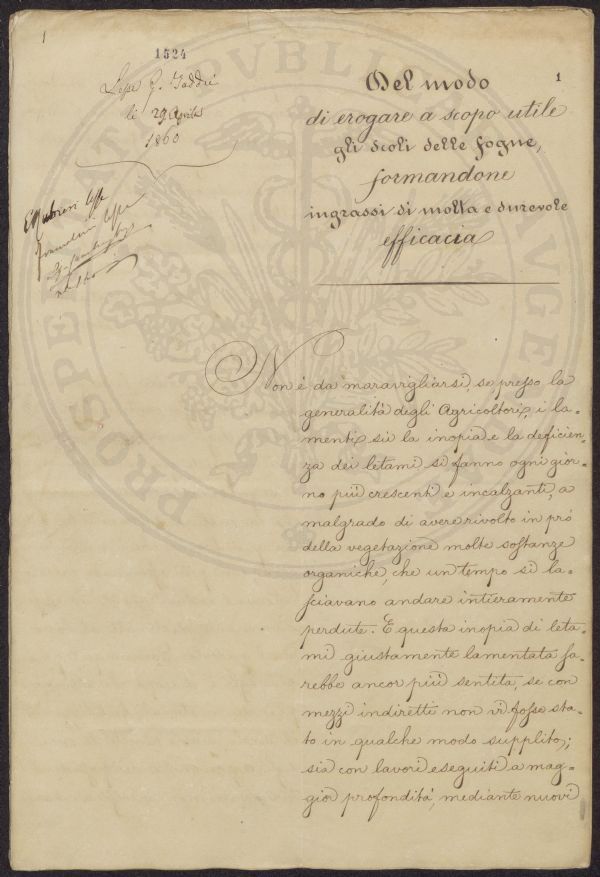 1
1524
Lesse G. Taddei
li 29 Aprile
1860
1
Del modo
di erogare a scopo utile
gli scoli delle fogne,
formandone
ingrassi di molta e durevole
efficacia
PROSPERITATI PUBLICAE AUGENDAE
Non é da maravigliarsi, se presso la
generalità degli Agricoltori, i la-
menti sù la inopia e la deficien-
za dei letami si fanno ogni gior-
no più crescenti e incalzanti, a
malgrado di avere rivolto in prò
della vegetazione molte sostanze
organiche, che un tempo si la-
sciavano andare intieramente
perdute. E questa inopia di leta-
mi giustamente lamentata sa-
rebbe ancor più sentita, se con
mezzi indiretti non vi fosse sta-
to in qualche modo supplito;
sia con lavori eseguiti a mag-
gior profondità, mediante nuovi